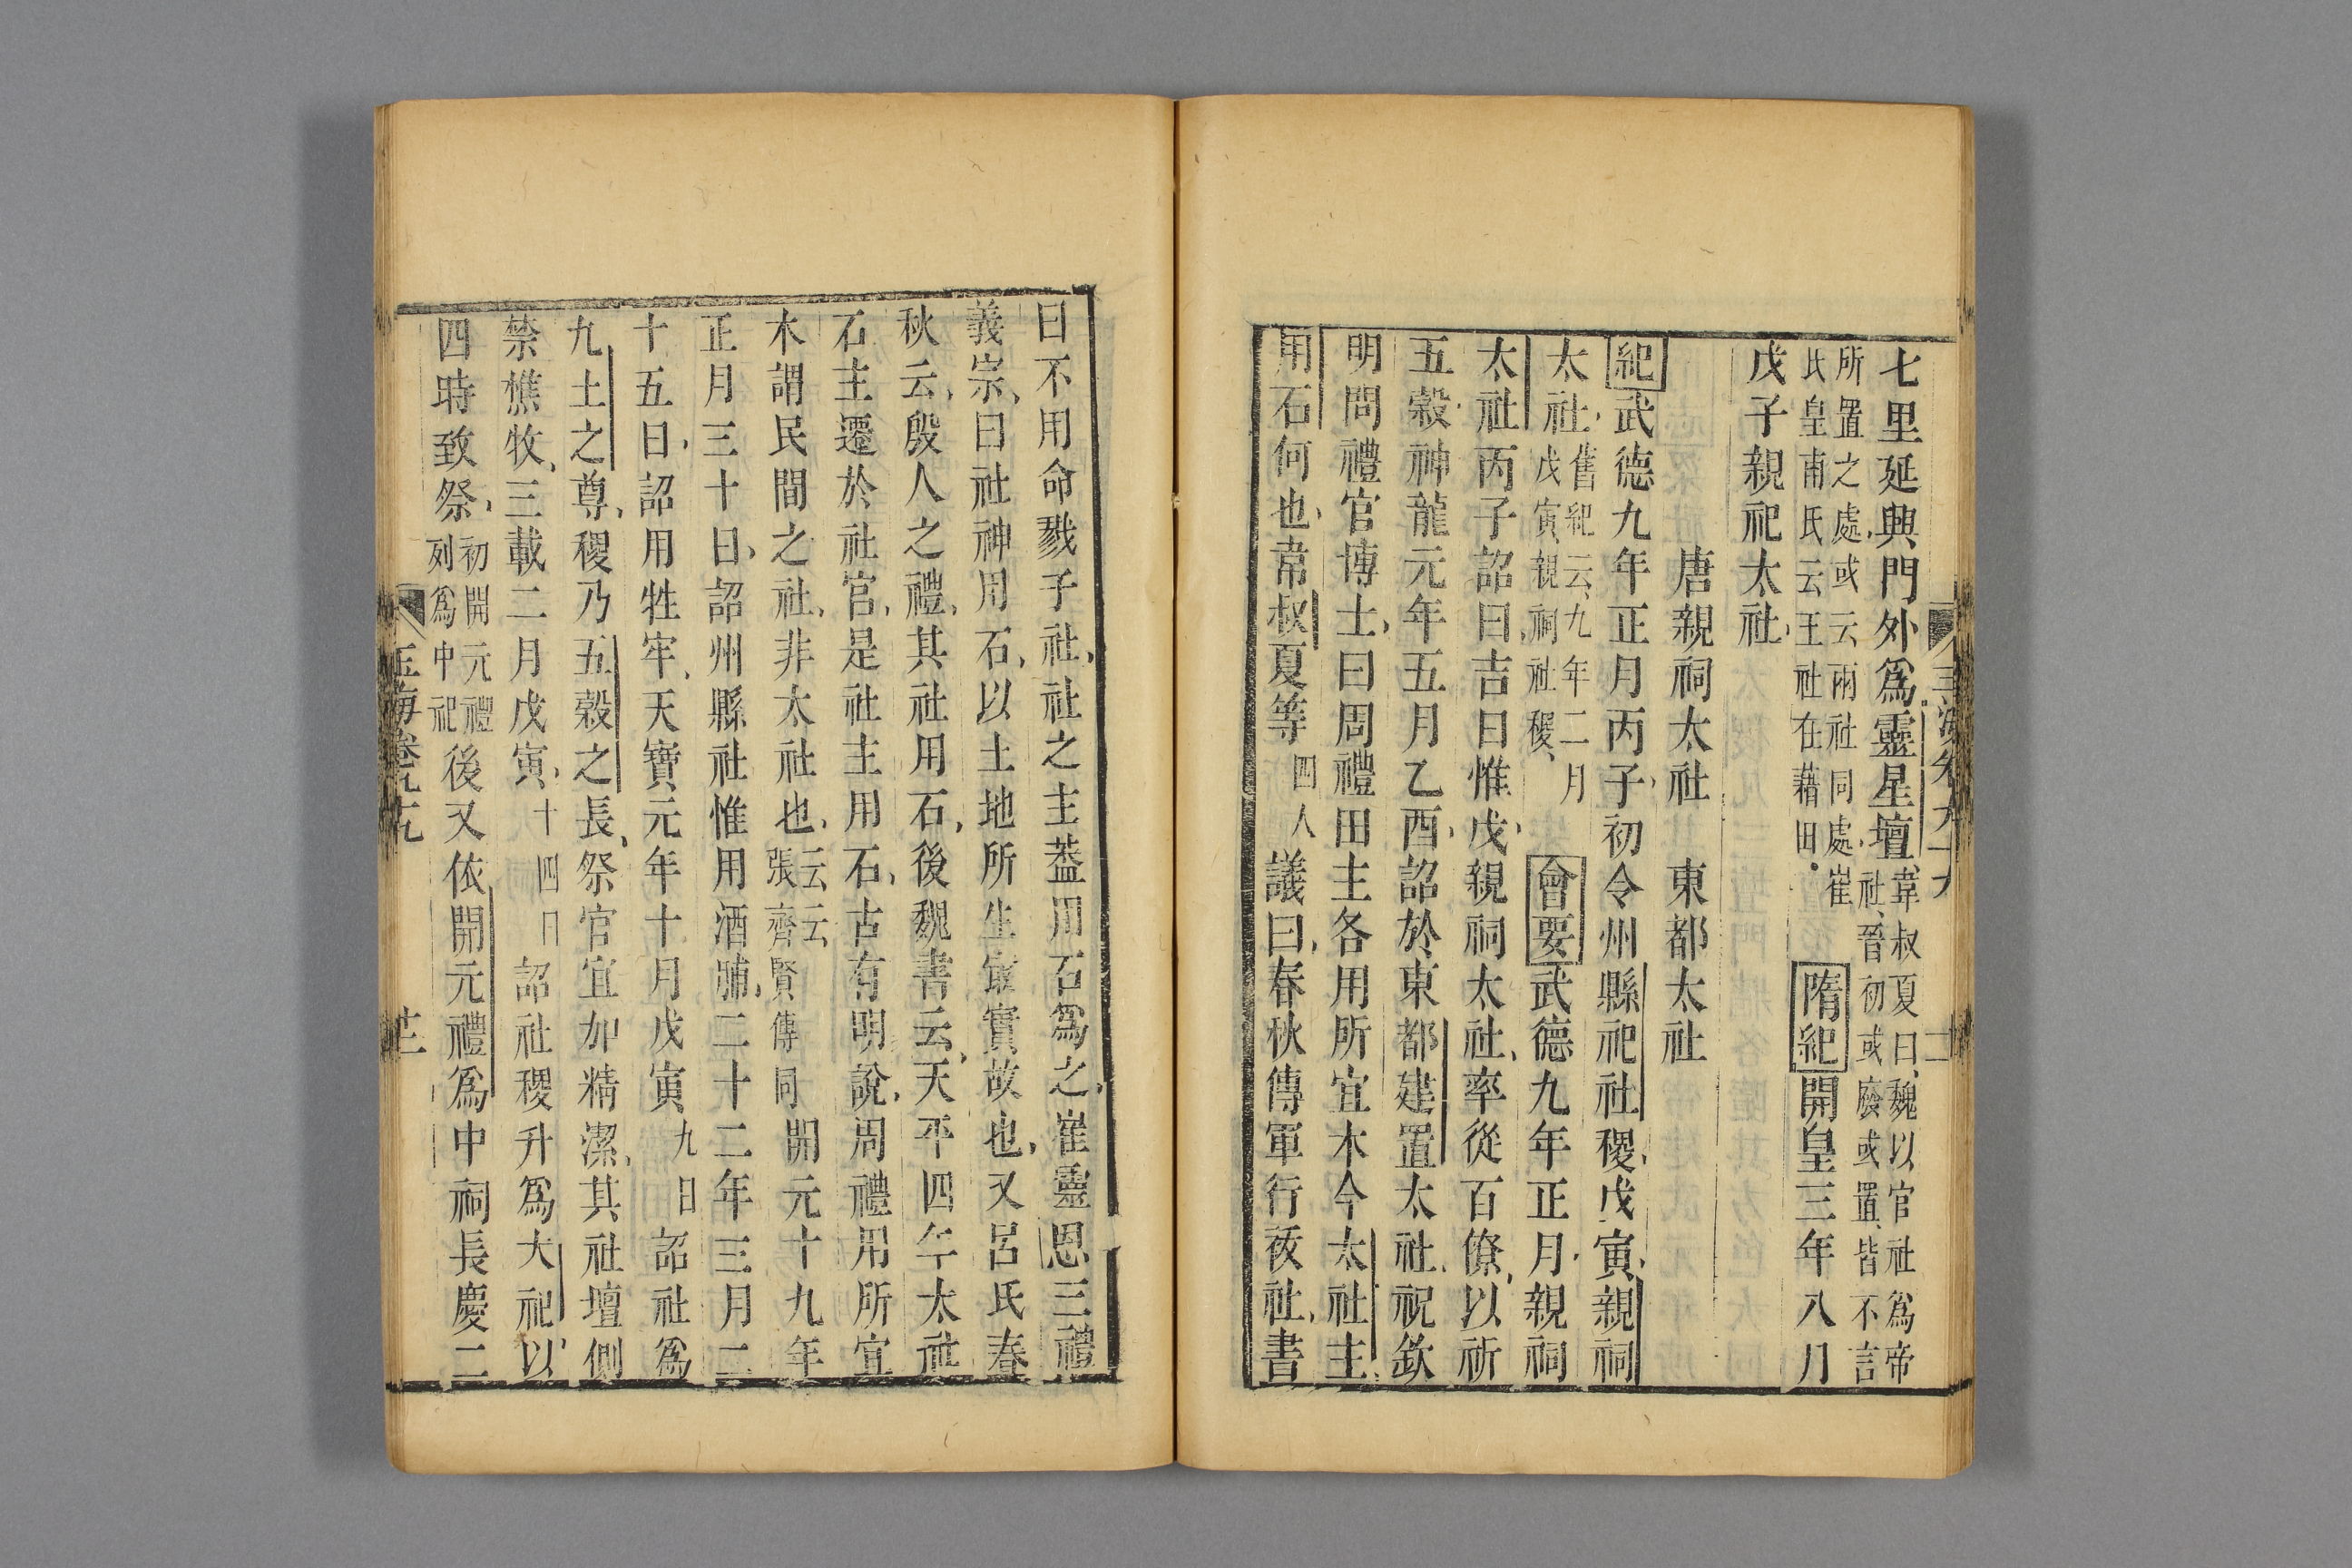 七里延興門外爲靈星壇韋叔夏曰魏以官社爲帝社晉初或廢或置皆不言
所置之處或云兩社同處崔氏皇甫氏云王社在藉田隋紀開皇三年八月
戊子親祀太社
唐親祠太社 東都太社
紀武德九年正月丙子初令州縣祀社稷戊寅親祠
太社舊紀云九年二月戊寅親祠社稷會要武德九年正月親祠
太社丙子詔曰吉日惟戊親祠太社率從百僚以祈
五穀神龍元年五月乙酉詔於東都建置太社祝欽
明問禮官博士曰周禮田主各用所宜木今太社主
用石何也韋叔夏等四人議曰春秋傳軍行祓社書
曰不用命戮于社社之主葢用石爲之崔靈恩三禮
義宗曰社神用石以土地所生最實故也又呂氏春
秋云殷人之禮其社用石後魏書云天平四年太社
石主遷於社宮是社主用石古有明說周禮用所宜
木謂民間之社非太社也云云張齊賢傳同開元十九年
正月三十日詔州縣社惟用酒脯二十二年三月二
十五日詔用牲牢天寶元年十月戊寅九日詔社爲
九土之尊稷乃五穀之長祭官宜加精潔其社壇側
禁樵牧三載二月戊寅十四日詔社稷升爲大祀以
四時致祭初開元禮列爲中祀後又依開元禮爲中祠長慶二
玉海卷九十九